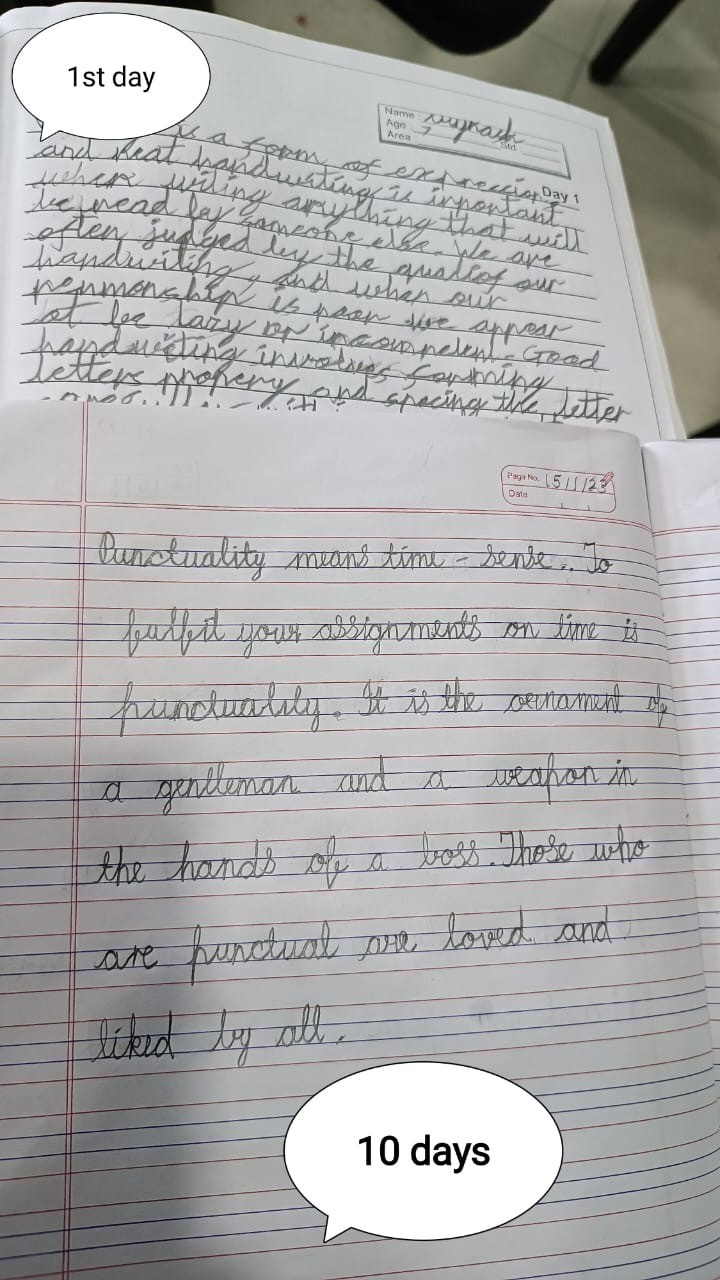 1st day
Name
Age 7
Std
Area
Day 1
is a form of expression
and neat handwriting is inportant
when writing anything that will
be read by someone else. We are
often judged by the qualiof our
handwriting, and when our
penmonship is poor we appear
ot be lazy or incompelent. Good
handwriting involves forming
letters propery and spacing the letter
Page No. 15/1/23
Date
Punctuality means time - sense.. To
fulfil your assignments on time is
punctuality. It is the oernament of
a gentleman and a weapon in
the hands of a boss. Those who
are punctual are loved and
liked by all.
10 days